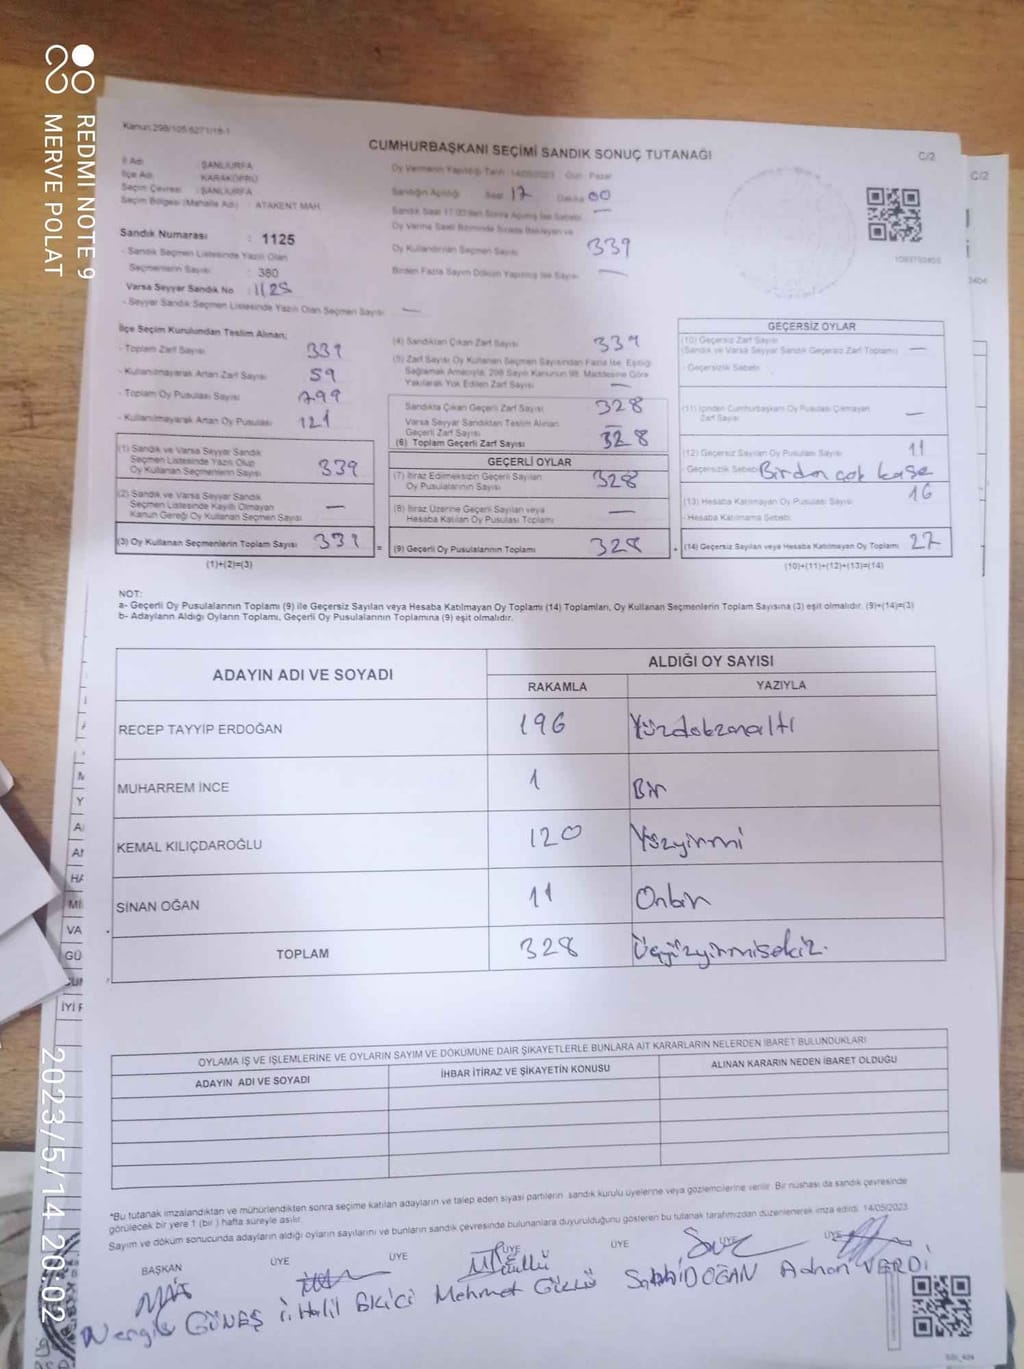 Kanun:298/105,6271/18-1
CUMHURBAŞKANI SEÇİMİ SANDIK SONUÇ TUTANAĞI
C/2
C/2
İl Adı : ŞANLIURFA
İlçe Adı : KARAKÖPRÜ
Seçim Çevresi : ŞANLIURFA
Seçim Bölgesi (Mahalle Adı) : ATAKENT MAH.
Sandık Numarası : 1125
- Sandık Seçmen Listesinde Yazılı Olan
Seçmenlerin Sayısı : 380
Varsa Seyyar Sandık No : 1125
- Seyyar Sandık Seçmen Listesinde Yazılı Olan Seçmen Sayısı —
Oy Vermenin Yapıldığı Tarih : 14/05/2023 Gün : Pazar
Sandığın Açıldığı Saat 17 Dakika 00
Sandık Saat 17:00'den Sonra Açılmış İse Sebebi —
Oy Verme Saati Bitiminde Sırada Bekleyen ve
Oy Kullandırılan Seçmen Sayısı 339
Birden Fazla Sayım Döküm Yapılmış İse Sayısı —
İlçe Seçim Kurulundan Teslim Alınan;
- Toplam Zarf Sayısı 339
- Kullanılmayarak Artan Zarf Sayısı 59
- Toplam Oy Pusulası Sayısı
- Kullanılmayarak Artan Oy Pusulası 121
(1) Sandık ve Varsa Seyyar Sandık
Seçmen Listesinde Yazılı Olup
Oy Kullanan Seçmenlerin Sayısı 339
(2) Sandık ve Varsa Seyyar Sandık
Seçmen Listesinde Kayıtlı Olmayan
Kanun Gereği Oy Kullanan Seçmen Sayısı —
(3) Oy Kullanan Seçmenlerin Toplam Sayısı 339
(1)+(2)=(3)
(4) Sandıktan Çıkan Zarf Sayısı 339
(5) Zarf Sayısı Oy Kullanan Seçmen Sayısından Fazla İse, Eşitliği
Sağlamak Amacıyla, 298 Sayılı Kanunun 98. Maddesine Göre
Yakılarak Yok Edilen Zarf Sayısı —
Sandıkta Çıkan Geçerli Zarf Sayısı 328
Varsa Seyyar Sandıktan Teslim Alınan
Geçerli Zarf Sayısı —
(6) Toplam Geçerli Zarf Sayısı 328
GEÇERLİ OYLAR
(7) İtiraz Edilmeksizin Geçerli Sayılan
Oy Pusulalarının Sayısı 328
(8) İtiraz Üzerine Geçerli Sayılan veya
Hesaba Katılan Oy Pusulası Toplamı —
= (9) Geçerli Oy Pusulalarının Toplamı 328
GEÇERSİZ OYLAR
(10) Geçersiz Zarf Sayısı —
(Sandık ve Varsa Seyyar Sandık Geçersiz Zarf Toplamı)
- Geçersizlik Sebebi
(11) İçinden Cumhurbaşkanı Oy Pusulası Çıkmayan —
Zarf Sayısı
(12) Geçersiz Sayılan Oy Pusulası Sayısı 11
Geçersizlik Sebebi Birden çok kaşe
(13) Hesaba Katılmayan Oy Pusulası Sayısı 16
- Hesaba Katılmama Sebebi
+ (14) Geçersiz Sayılan veya Hesaba Katılmayan Oy Toplamı 27
(10)+(11)+(12)+(13)=(14)
NOT:
a- Geçerli Oy Pusulalarının Toplamı (9) ile Geçersiz Sayılan veya Hesaba Katılmayan Oy Toplamı (14) Toplamları, Oy Kullanan Seçmenlerin Toplam Sayısına (3) eşit olmalıdır. (9)+(14)=(3)
b- Adayların Aldığı Oyların Toplamı, Geçerli Oy Pusulalarının Toplamına (9) eşit olmalıdır.
ADAYIN ADI VE SOYADI
ALDIĞI OY SAYISI
RAKAMLA YAZIYLA
RECEP TAYYİP ERDOĞAN 196 Yüzdoksanaltı
MUHARREM İNCE 1 Bir
KEMAL KILIÇDAROĞLU 120 Yüzyirmi
SİNAN OĞAN 11 Onbir
TOPLAM 328 Üçyüzyirmisekiz.
OYLAMA İŞ VE İŞLEMLERİNE VE OYLARIN SAYIM VE DÖKÜMÜNE DAİR ŞİKAYETLERLE BUNLARA AİT KARARLARIN NELERDEN İBARET BULUNDUKLARI
ADAYIN ADI VE SOYADI İHBAR İTİRAZ VE ŞİKAYETİN KONUSU ALINAN KARARIN NEDEN İBARET OLDUĞU
*Bu tutanak imzalandıktan ve mühürlendikten sonra seçime katılan adayların ve talep eden siyasi partilerin sandık kurulu üyelerine veya gözlemcilerine verilir. Bir nüshası da sandık çevresinde
görülecek bir yere 1 (bir ) hafta süreyle asılır.
Sayım ve döküm sonucunda adayların aldığı oyların sayılarını ve bunların sandık çevresinde bulunanlara duyurulduğunu gösteren bu tutanak tarafımızdan düzenlenerek imza edildi. 14/05/2023
BAŞKAN ÜYE ÜYE ÜYE ÜYE ÜYE ÜYE
Nergis GÜNEŞ İ.Halil Ekici Mehmet Güllü Sabhi DOĞAN Adnan VERDİ
M
Y
A
HA
Mİ
VA
GÜ
İYİ
REDMI NOTE 9
MERVE POLAT
2023/5/14 20:02